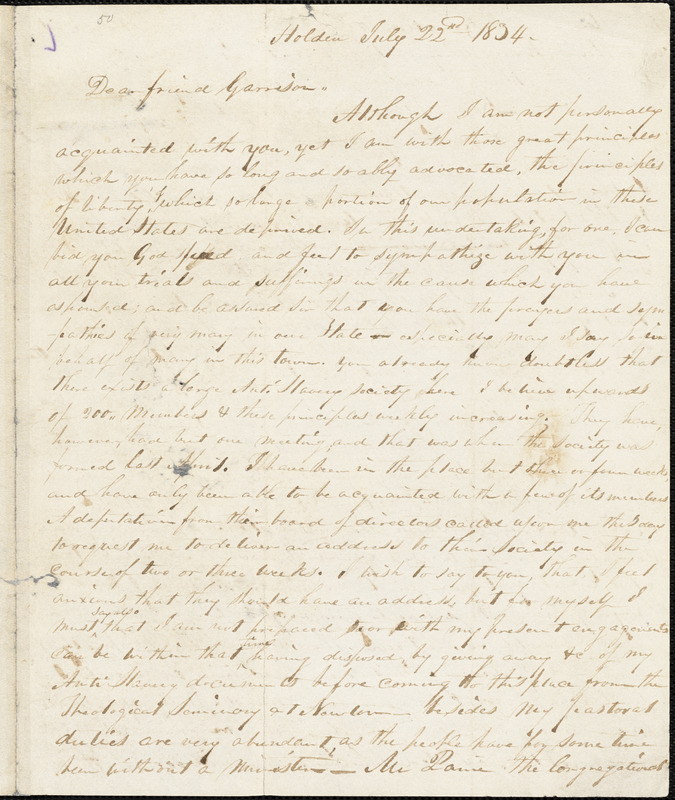 50
Holden July 22nd 1834.
Dear friend Garrison,,
Although I am not personally
acquainted with you, yet I am with those great principles
which you have so long and so ably advocated, the principles
of liberty, of which so large a portion of our population in these
United States are deprived. In this undertaking, for one, I can
bid you God speed and feel to sympathize with you in
all your trials and sufferings in the cause which you have
espoused; and be assured sir that you have the prayers and sym
pathies of very many in our State especially may I say so in
behalf of many in this town. You already know doubtless that
there exists a large Anti Slavery society here I believe upwards
of 200, Members & these principles weekly increasing. They have,
however, had but one meeting and that was when the Society was
formed last April. I have been in the place but three or four weeks
and have only been able to be acquainted with a few of its members
A deputation from their board of directors called upon me this day
to request me to deliver an address to their Society in the
course of two or three weeks. I wish to say to you, that I feel
anxious that they should have an address, but for myself I
must say also that I am not prepared nor with my present engagements
can be within that time having disposed by giving away &c of my
Anti Slavery documents before coming to this place from the
Theological Seminary at Newton besides my pastoral
duties are very abundant, as the people have for some time
been without a Minister — Mr Paine the Congregational